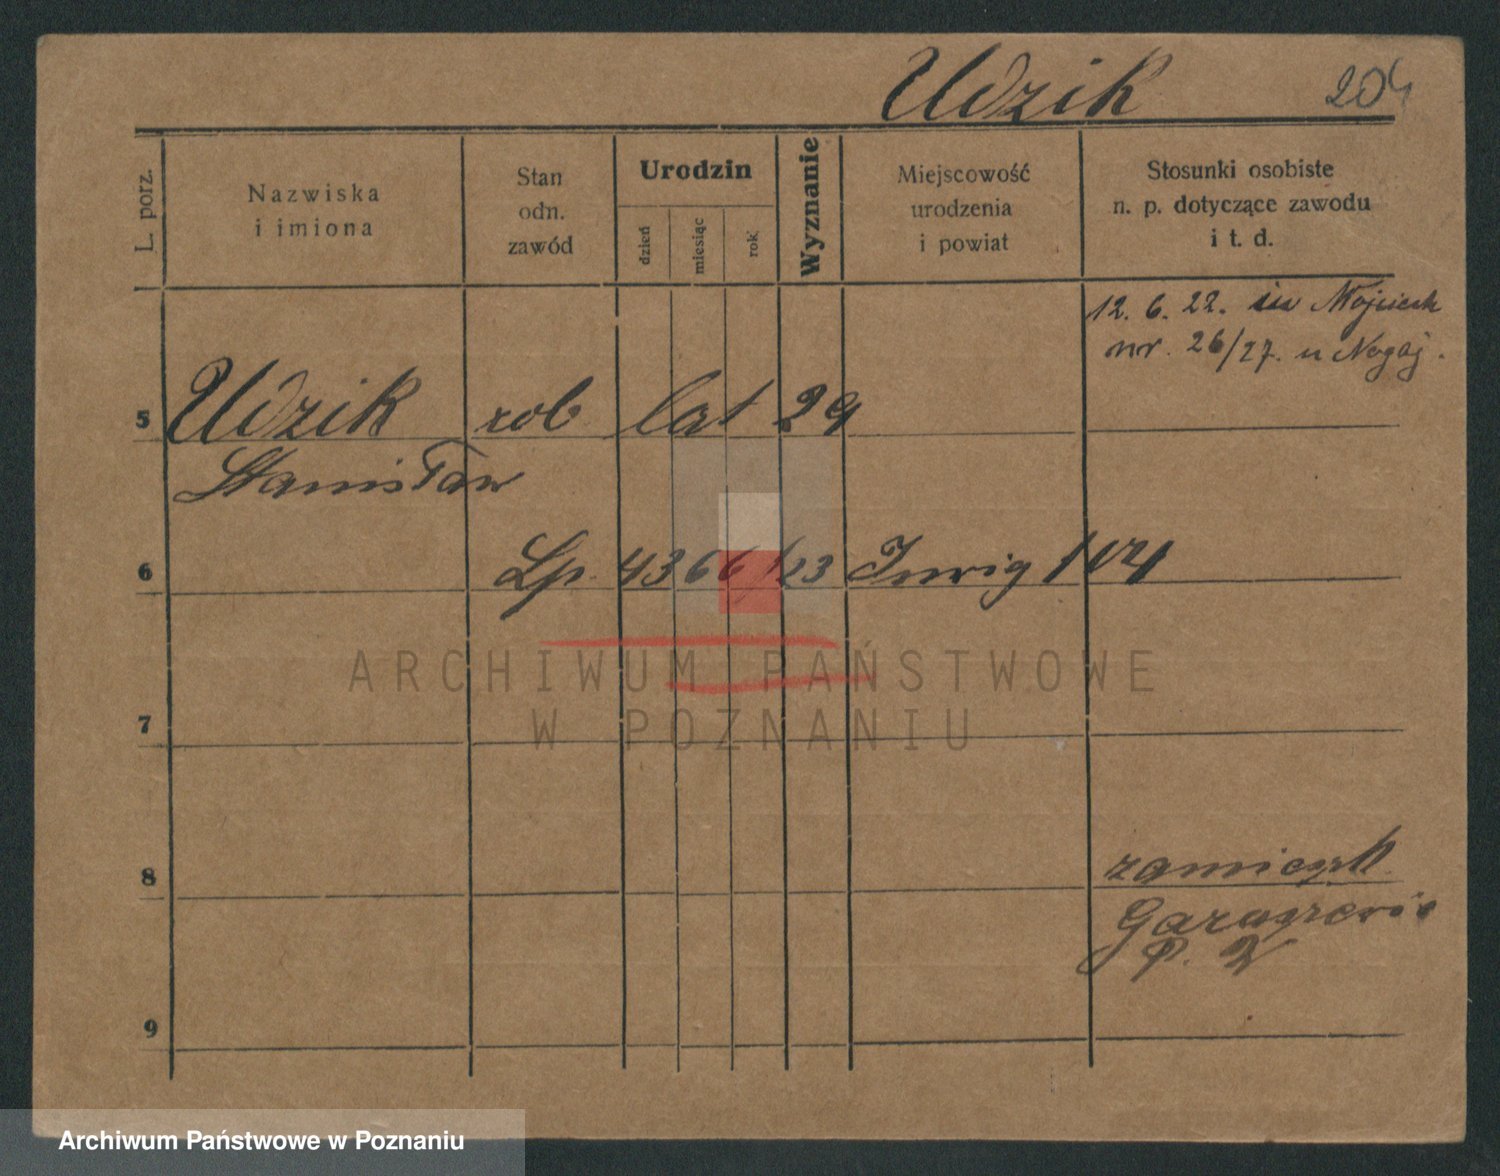 Udzik 204
L. porz.
Nazwiska
i imiona
Stan
odn.
zawód
Urodzin
dzień
miesiąc
rok
Wyznanie
Miejscowość
urodzenia
i powiat
Stosunki osobiste
n. p. dotyczące zawodu
i t. d.
12. 6. 22.
nr. 26/27. u
5 Udzik rob lat 29
Stanisław
6 Lp. 4366/23
7
8
P. 2
9
ARCHIWUM PAŃSTWOWE
W POZNANIU
Archiwum Państwowe w Poznaniu